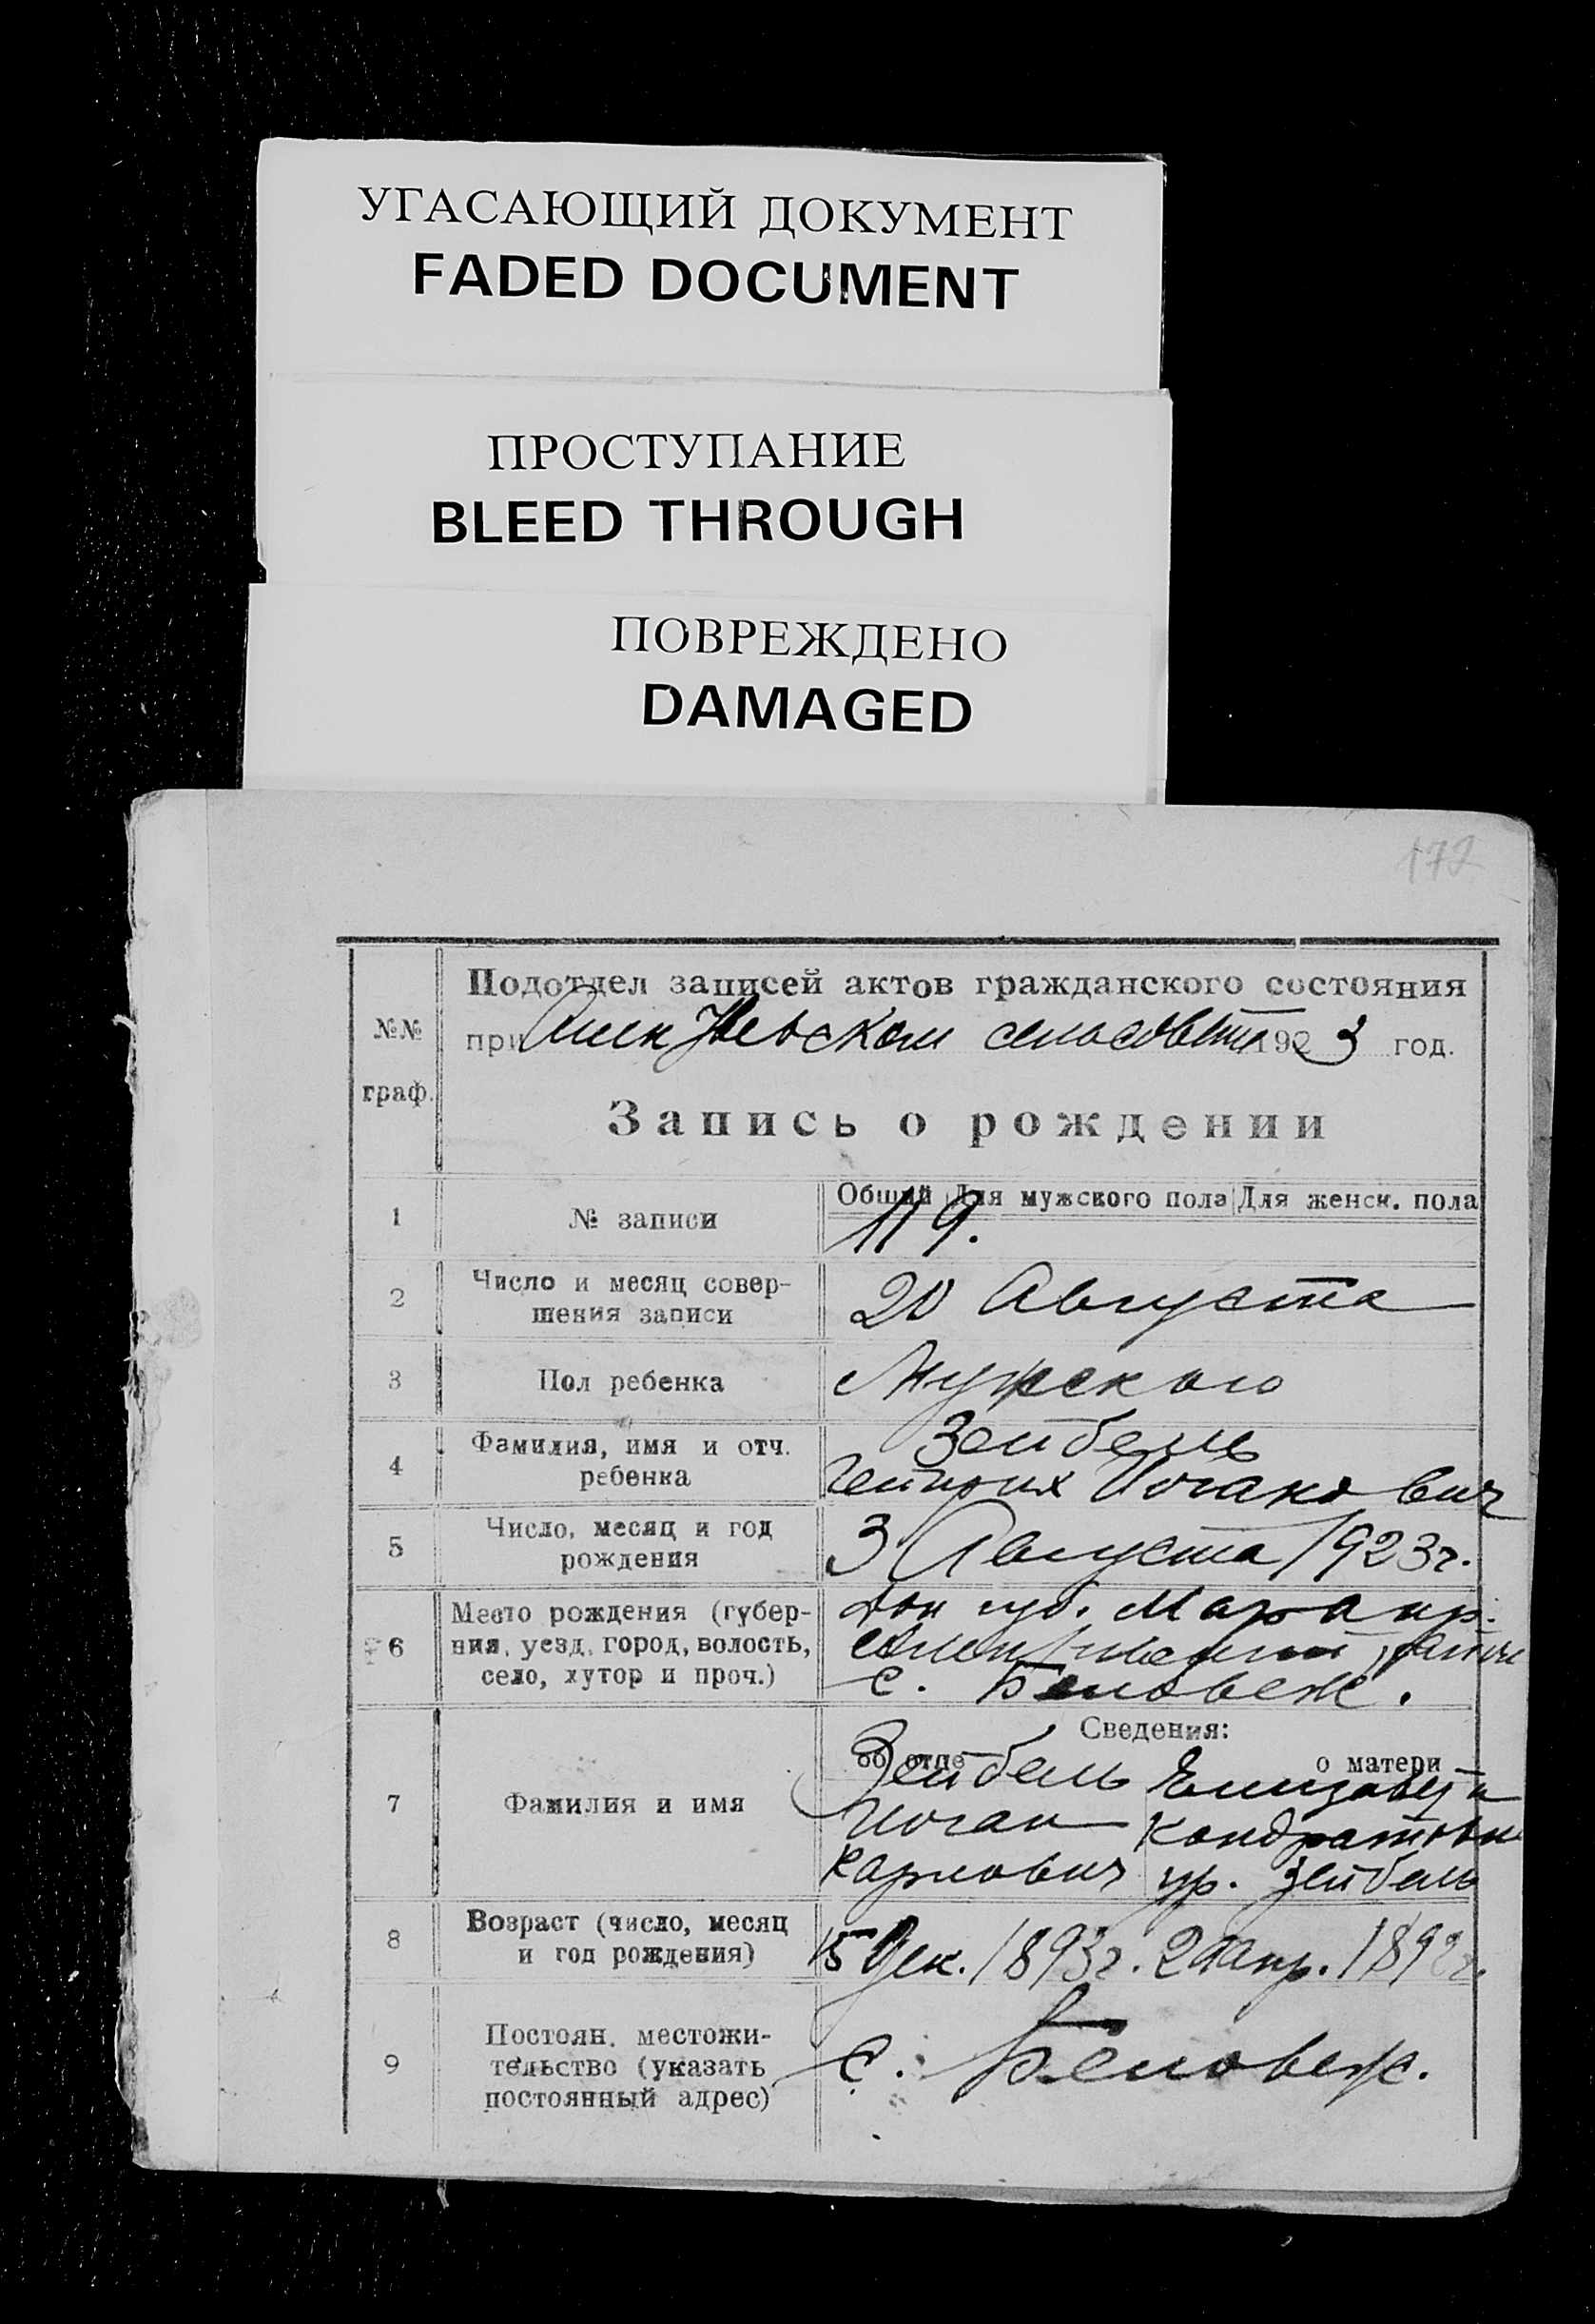 УГАСАЮЩИЙ ДОКУМЕНТ
FADED DOCUMENT
ПРОСТУПАНИЕ
BLEED THROUGH
ПОВРЕЖДЕНО
DAMAGED
172
Подотдел записей актов гражданского состояния
№№
при сельсовете 1923 год.
граф.
Запись о рождении
Общий Для мужского пола Для женск. пола
1 № записи 119.
2 Число и месяц совер-
шения записи 20 Августа
3 Пол ребенка Мужского
4 Фамилия, имя и отч. Зейбель
ребенка Гейнрих Иоганович
5 Число, месяц и год
рождения 3 Августа 1923 г.
6 Место рождения (губер- Дон губ. Мариуп.
ния, уезд, город, волость,
село, хутор и проч.) с. Беловеж.
Сведения:
об отце о матери
7 Фамилия и имя
Зейбель Елизавета
Иоган Кондратовн
Карлович ур. Зейбель
8 Возраст (число, месяц
и год рождения) 15 Дек. 1893 г. апр. 1892 г.
9 Постоян. местожи-
тельство (указать с. Беловеж.
постоянный адрес)